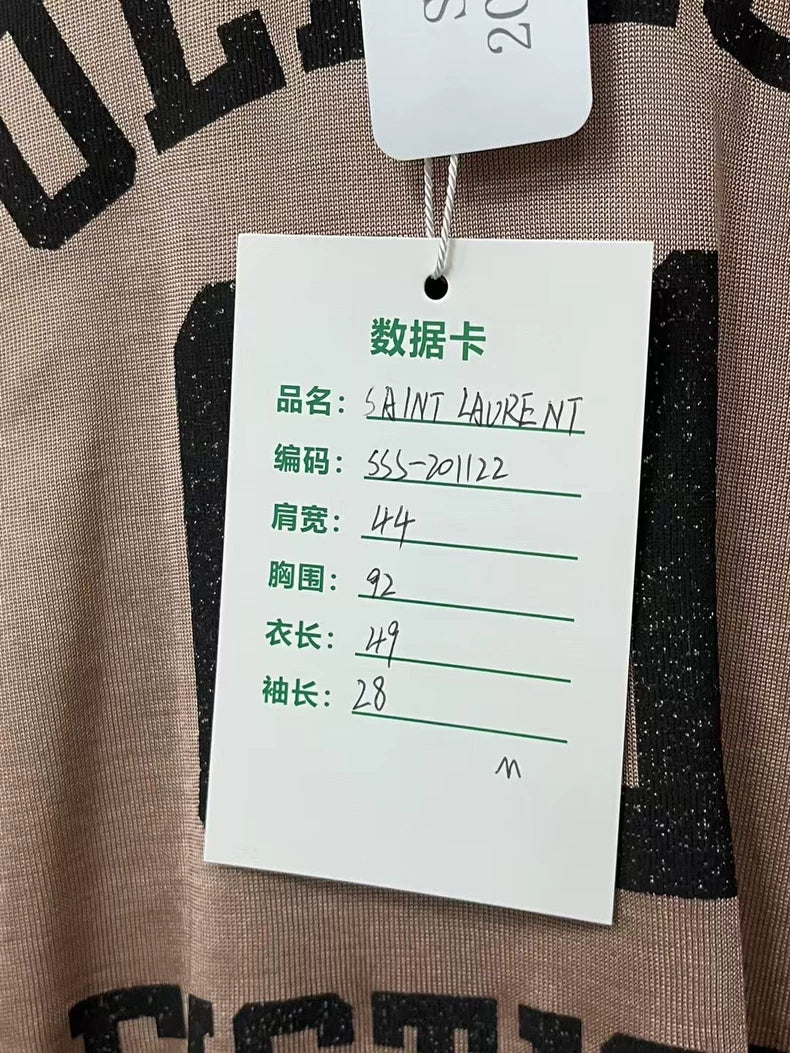 数据卡
品名：SAINT LAURENT
编码：SSS-201122
肩宽：44
胸围：92
衣长：49
袖长：28
M